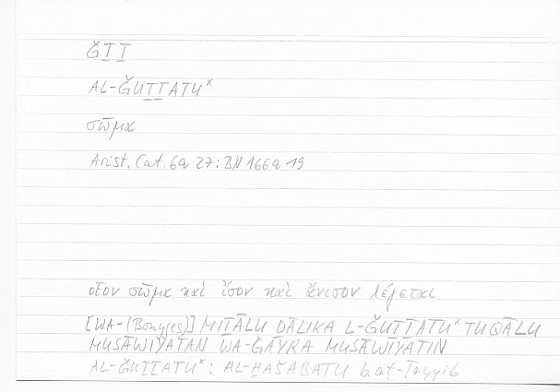 ǦṮṮ
AL-ǦUṮṮATUˣ
σῶμα
Arist. Cat. 6a 27 : BN 166a 19
οἷον σῶμα καὶ ἴσον καὶ ἄνισον λέγεται
[WA-(Bouyges)] MIṮĀLU ḎĀLIKA L-ǦUṮṮATUˣ TUQĀLU
MUSĀWIYATAN WA-ĠAYRA MUSĀWIYATIN
AL-ǦUṮṮATUˣ : AL-ḪAŠABATU b. aṭ-Ṭayyib